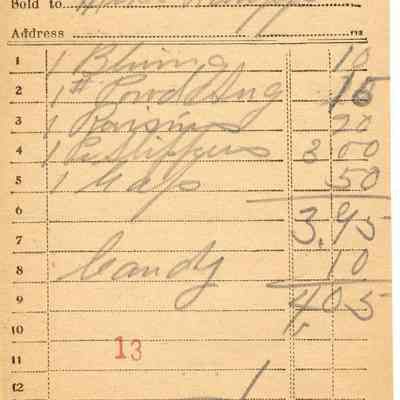 Sold to
Address
1 1 Bluing 10
2 1 # Pudding 15
3 1 Raisins 20
4 1 Pr Slippers 3 00
5 1 50
6 3.95
7
8 Candy 10
9 4.05
10
11 13
12